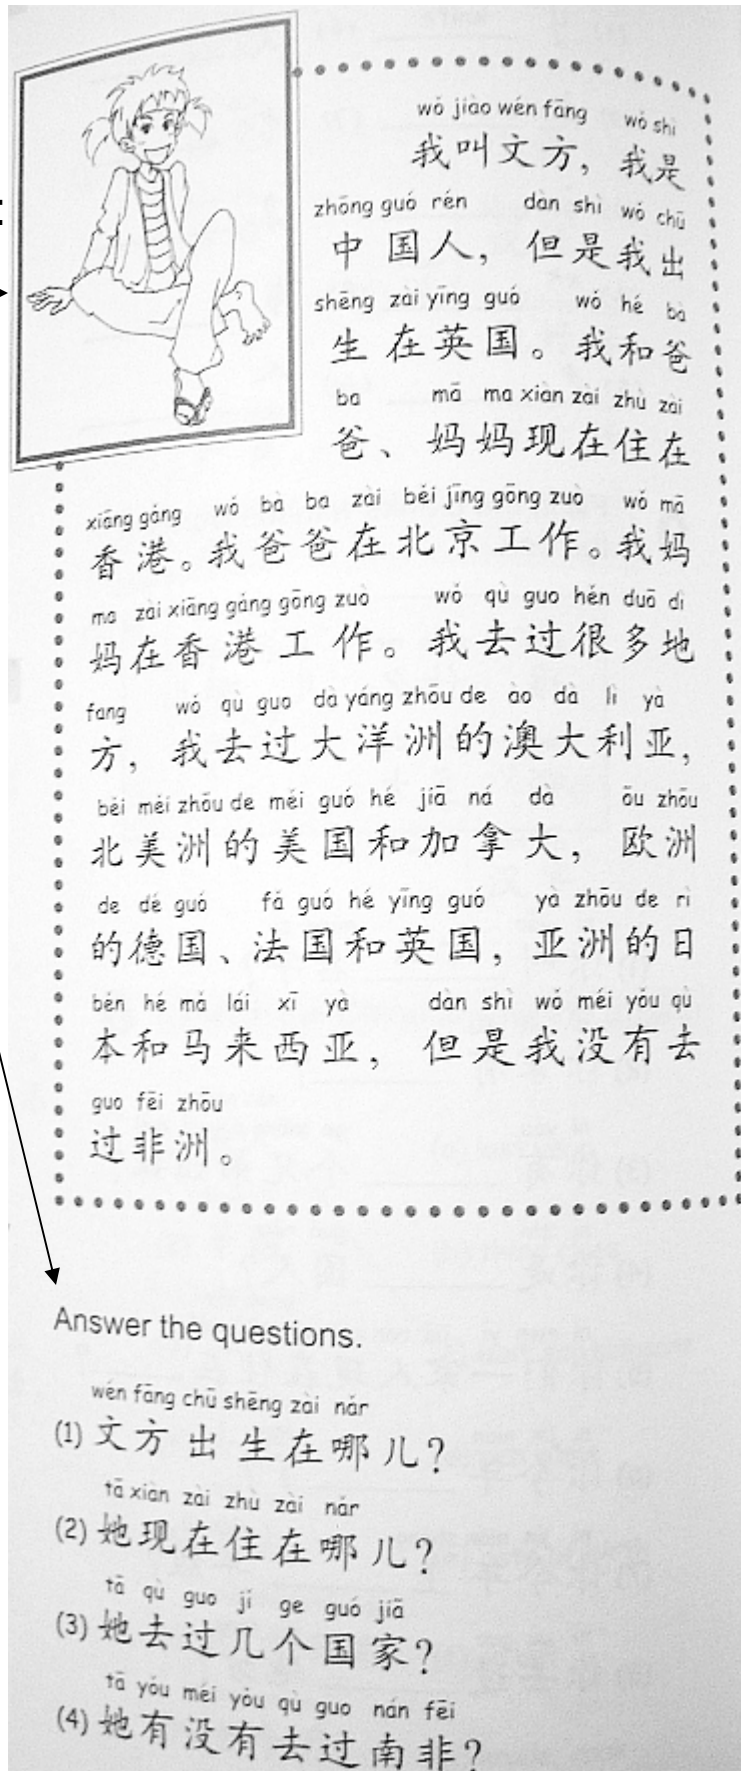 wǒ jiào wén fāng wǒ shì
我叫文方，我是
zhōng guó rén dàn shì wǒ chū
中国人，但是我出
shēng zài yīng guó wǒ hé bà
生在英国。我和爸
ba mā ma xiàn zài zhù zài
爸、妈妈现在住在
xiāng gǎng wǒ bà ba zài běi jīng gōng zuò wǒ mā
香港。我爸爸在北京工作。我妈
ma zài xiāng gǎng gōng zuò wǒ qù guo hěn duō dì
妈在香港工作。我去过很多地
fang wǒ qù guo dà yáng zhōu de ào dà lì yà
方，我去过大洋洲的澳大利亚，
běi měi zhōu de měi guó hé jiā ná dà ōu zhōu
北美洲的美国和加拿大，欧洲
de dé guó fǎ guó hé yīng guó yà zhōu de rì
的德国、法国和英国，亚洲的日
běn hé mǎ lái xī yà dàn shì wǒ méi yǒu qù
本和马来西亚，但是我没有去
guo fēi zhōu
过非洲。
Answer the questions.
wén fāng chū shēng zài nǎr
(1) 文方出生在哪儿？
tā xiàn zài zhù zài nǎr
(2) 她现在住在哪儿？
tā qù guo jǐ ge guó jiā
(3) 她去过几个国家？
tā yǒu méi yǒu qù guo nán fēi
(4) 她有没有去过南非？